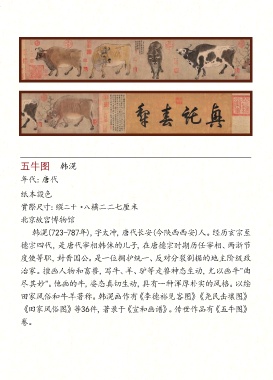 五牛图 韩滉
年代: 唐代
纸本设色
实际尺寸: 纵二十·八横二二七厘米
北京故宫博物馆
韩滉(723-787年), 字太冲, 唐代长安(今陕西西安)人。经历玄宗至
德宗四代, 是唐代宰相韩休的儿子, 在唐德宗时期历任宰相、两浙节
度使等职, 封晋国公。是一位拥护统一、反对分裂割据的地主阶级政
治家。擅画人物和畜兽, 写牛、羊、驴等走兽神态生动, 尤以画牛“曲
尽其妙”。他画的牛, 姿态真切生动, 具有一种浑厚朴实的风格。以绘
田家风俗和牛羊著称。韩滉画作有《李德裕见客图》《尧民击壤图》
《田家风俗图》等36件, 著录于《宣和画谱》。传世作品有《五牛图》
卷。